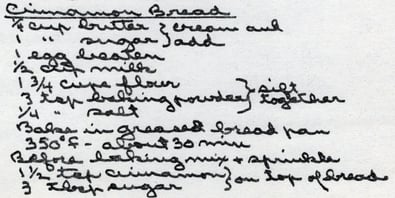 Cinnamon Bread
1/4 cup butter } cream and
1 " sugar } add
1 egg beaten
1/2 cup milk
1 3/4 cups flour } sift
3 tsp baking powder } together
1/4 " salt
Bake in greased bread pan
350°F - about 30 min
Before baking mix + sprinkle
1 1/2 tsp cinnamon } on top of bread
3 tbsp sugar